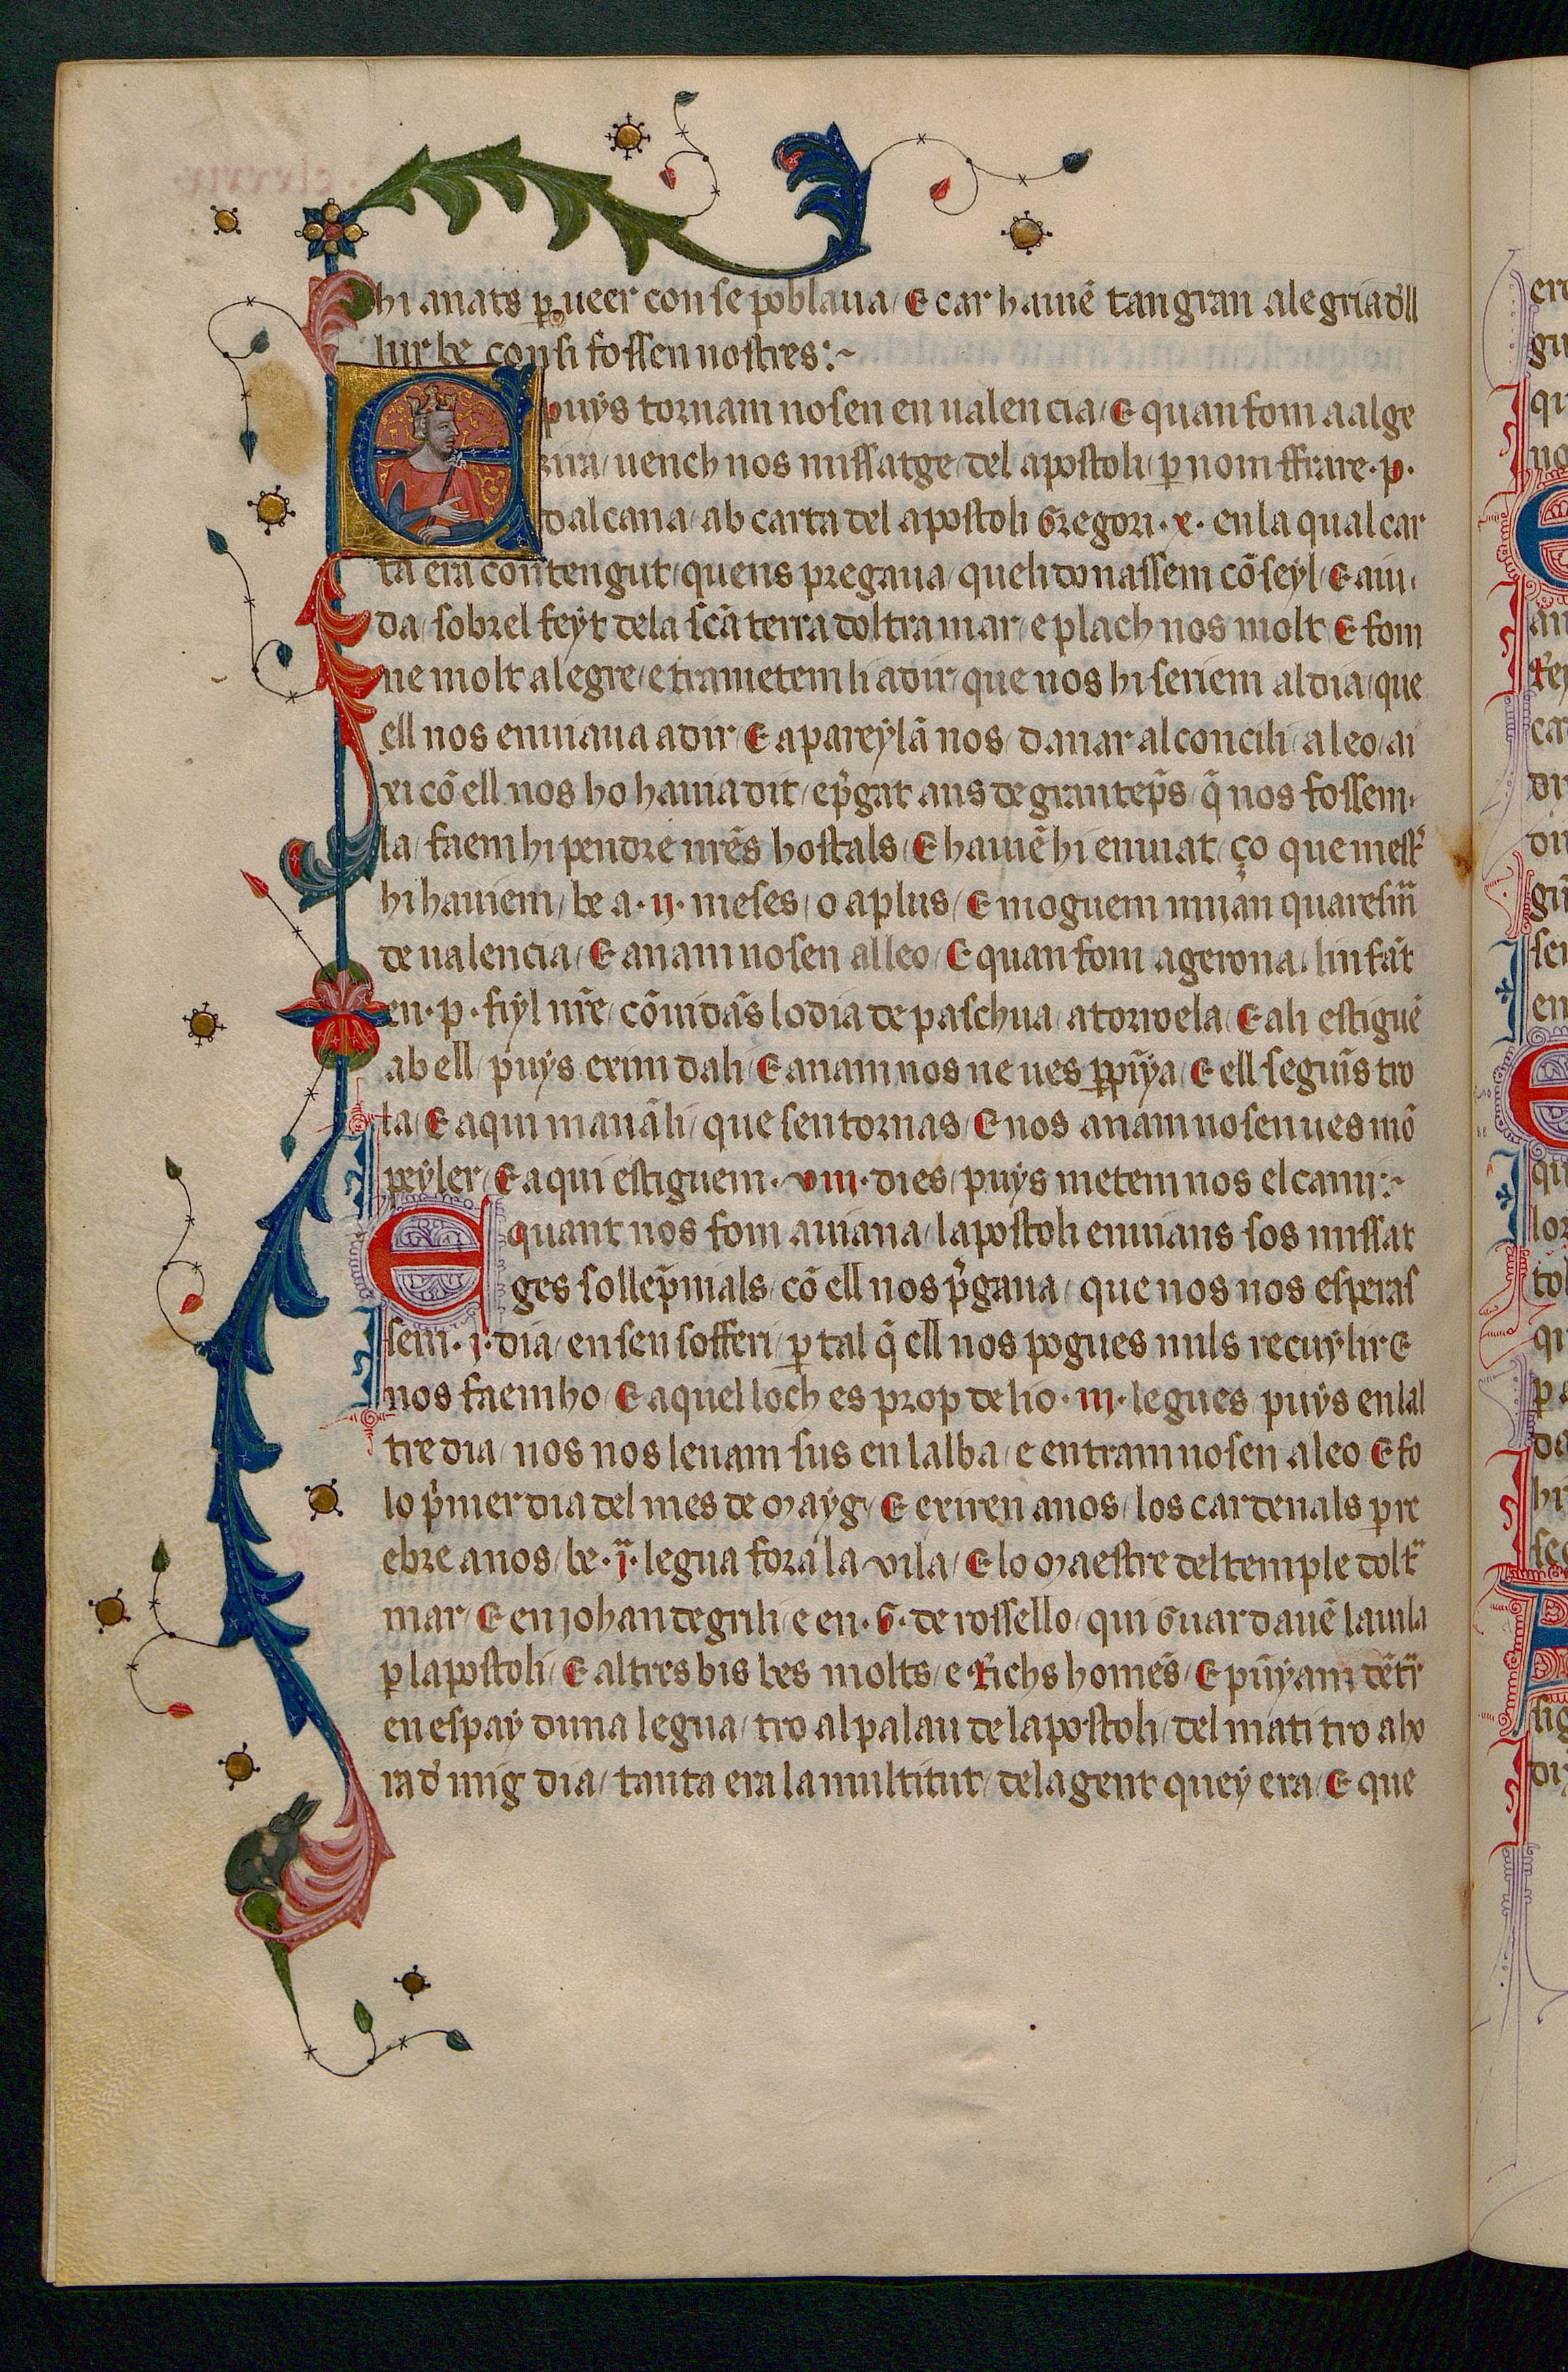 hi anats p̱ ueer con se poblaua / E car hauiē tan gran alegria dll
lur be con si fossen nostres :~
E puÿs tornam nosen en ualencia / E quan fom a alge
zira / uench nos missatge / del apostoli / p̱ nom ffrare · p ·
dalcana / ab carta del apostoli Gregori · x · en la qual car
ta era contengut / quens pregaua / queli donassem cōseyl / E aiu
da / sobrel feÿt de la scā terra doltra mar / e plach nos molt / E fom
ne molt alegre / e trametem li a dir / que nos hi seriem al dia / que
ell nos enuiaua a dir / E apareÿlā nos / danar al concili / a leo / ai
xi cō ell nos ho hauia dit / e p̄gat ans de gran tēps / q̄ nos fossem
la / faem hi pendre nr̄es hostals / E hauiē hi enuiat / ço que mest̄
hi hauiem / be a · ij · meses / o a plus / E moguem mijan quaresm̄
de ualencia / E anam nosen al leo / E quan fom a gerona / linfāt
en · p · fiÿl nr̄e / cōuidās lo dia de paschua / a torroela / E ali estiguē
ab ell / puÿs exim dali / E anam nos ne ues p̱pīya / E ell seguīs tro
la / E aqui manāli / que sen tornas / E nos anam nosen ues mō
peÿler / E aqui estiguem · viii · dies / puÿs metem nos el cami :~
E quant nos fom a uiana / lapostoli enuians sos missat
ges sollep̄nials / cō ell nos p̄gaua / que nos nos esperas
sem · j · dia / en sen sofferi / p̱ tal q̄ ell nos pogues mils recuÿlir E
nos faem ho / E aquel loch es prop de lio · iij · legues / puÿs en lal
tre dia / nos nos leuam sus en lalba / e entram nosen a leo E fo
lo p̄mer dia del mes de Maÿg / E exiren a nos / los cardenals p̱ re
ebre a nos / be · jā · legua fora la vila / E lo Maestre del temple dolt̄
mar / E en johan de grili / e en · G · de rossello / qui Guardauē la uila
p̱ lapostoli / E altres bisbes molts / e Richs homēs / E puÿam dētr̄
en espaÿ duna legua / tro al palau de lapostoli / del mati tro a ho
ra d mig dia / tanta era la multitut / de la gent quey era / E que